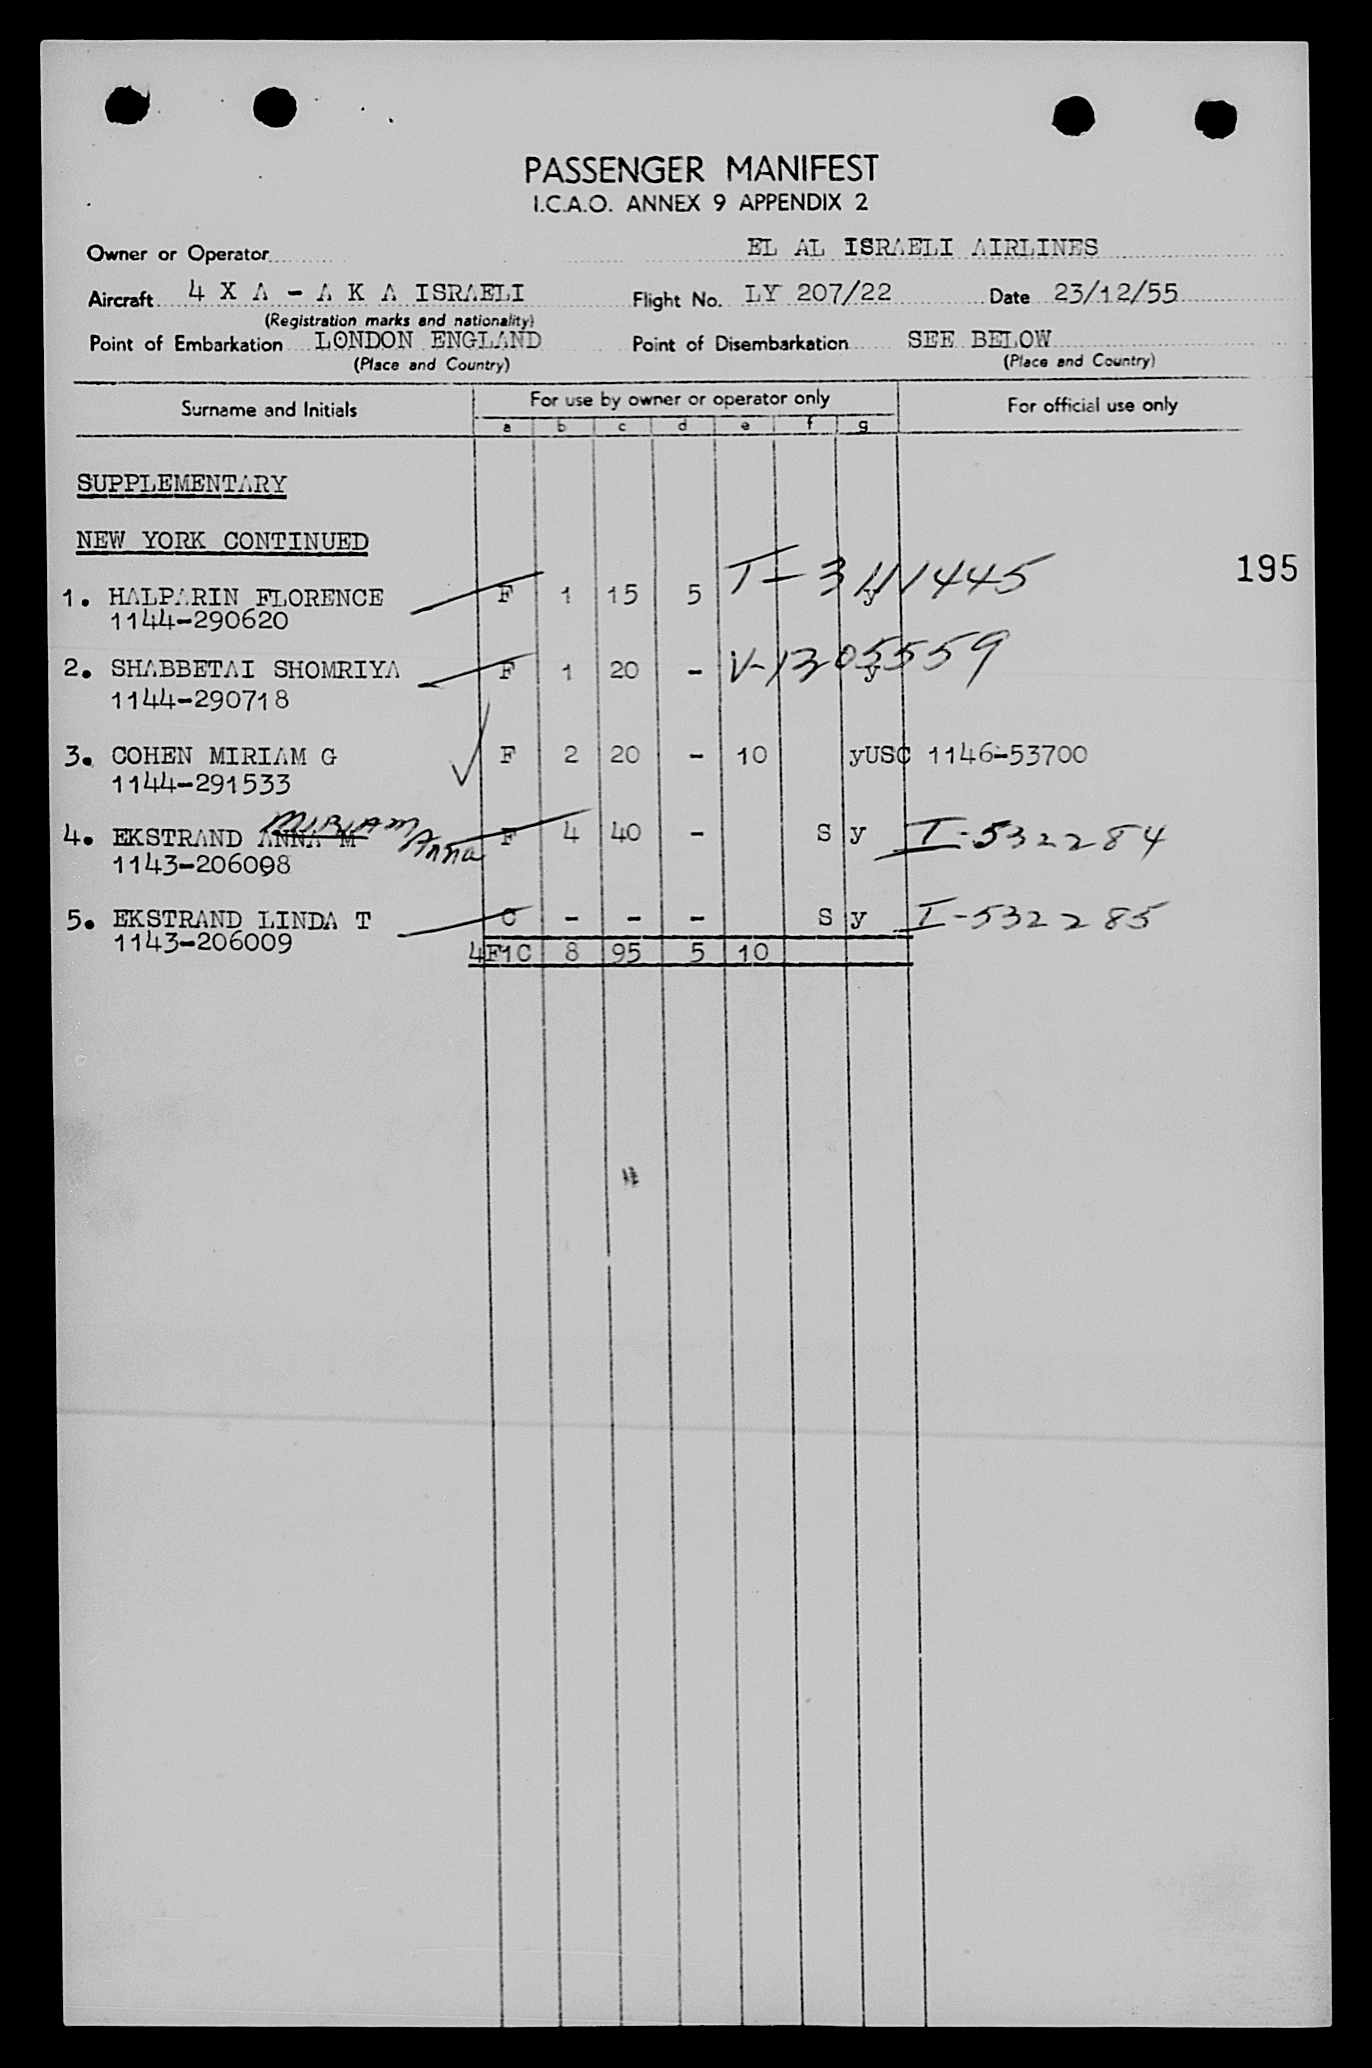 PASSENGER MANIFEST
I.C.A.O. ANNEX 9 APPENDIX 2
Owner or Operator EL AL ISRAELI AIRLINES
Aircraft 4 X A - A K A ISRAELI Flight No. LY 207/22 Date 23/12/55
(Registration marks and nationality)
Point of Embarkation LONDON ENGLAND Point of Disembarkation SEE BELOW
(Place and Country) (Place and Country)
Surname and Initials For use by owner or operator only For official use only
a b c d e f g
SUPPLEMENTARY
NEW YORK CONTINUED
195
1. HALPARIN FLORENCE F 1 15 5 y T-341445
1144-290620
2. SHABBETAI SHOMRIYA F 1 20 - y V-1305559
1144-290718
3. COHEN MIRIAM G F 2 20 - 10 yUSC 1146-53700
1144-291533
Miriam Anna
4. EKSTRAND ANNA M F 4 40 - S y I-532284
1143-206008
5. EKSTRAND LINDA T C - - - S y I-532285
1143-206009
4F1C 8 95 5 10